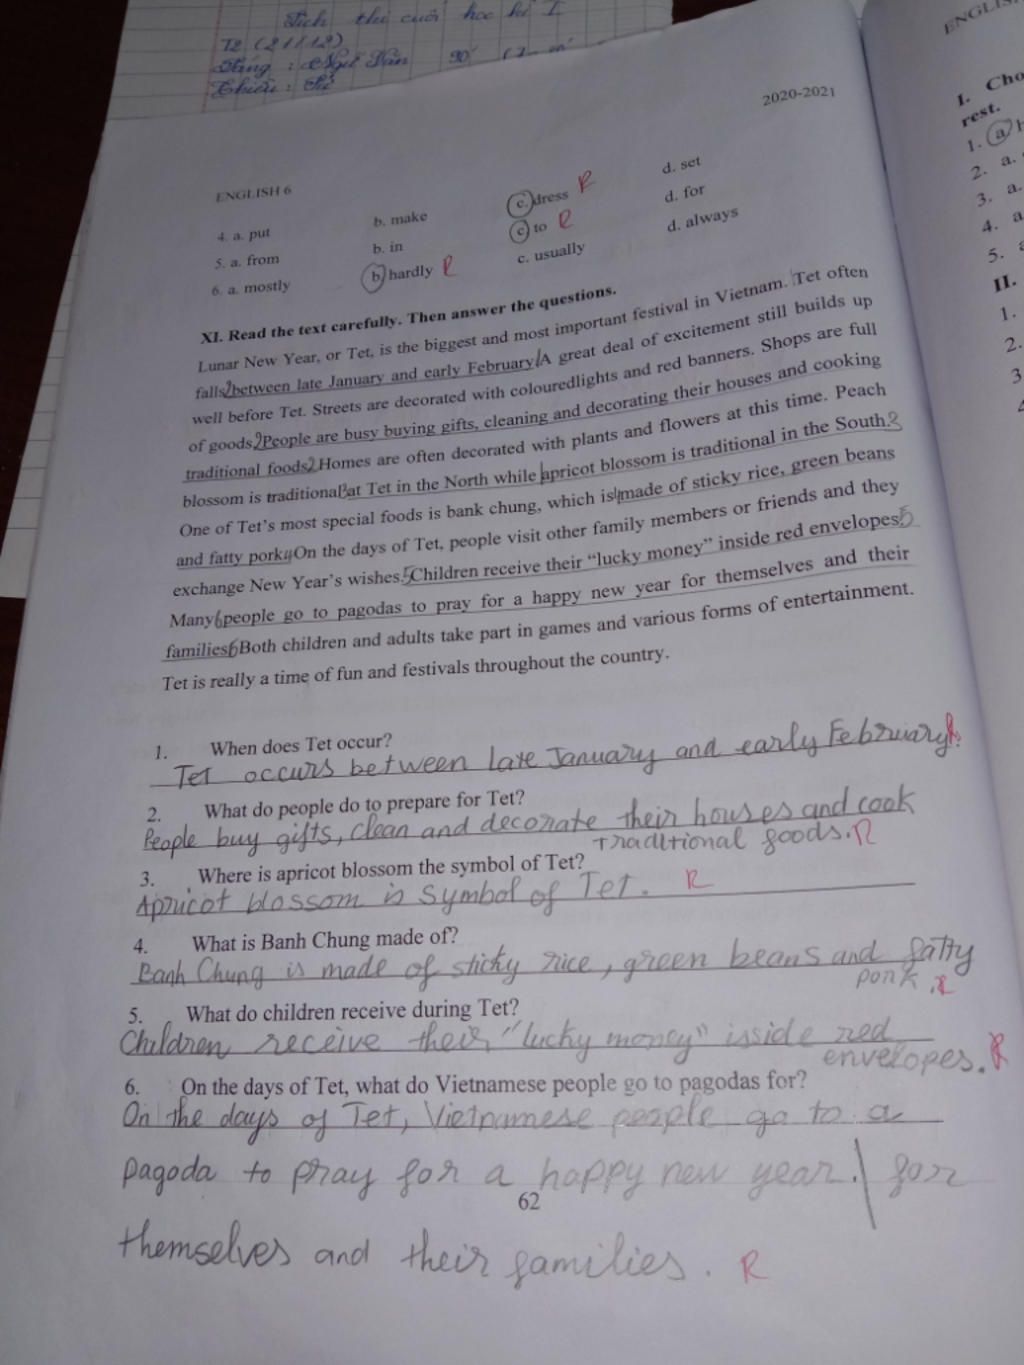 Lịch thi cuối học kì I
T2 (21/12)
Sáng : Ngữ Văn 90'
Chiều : Sử
2020-2021
ENGLISH 6
4. a. put b. make c. dress R d. set
5. a. from b. in c. to R d. for
6. a. mostly b. hardly R c. usually d. always
XI. Read the text carefully. Then answer the questions.
Lunar New Year, or Tet, is the biggest and most important festival in Vietnam. Tet often
falls between late January and early February. A great deal of excitement still builds up
well before Tet. Streets are decorated with colouredlights and red banners. Shops are full
of goods. 2 People are busy buying gifts, cleaning and decorating their houses and cooking
traditional foods. 2 Homes are often decorated with plants and flowers at this time. Peach
blossom is traditional 3 at Tet in the North while apricot blossom is traditional in the South. 3
One of Tet's most special foods is bank chung, which is made of sticky rice, green beans
and fatty pork. 4 On the days of Tet, people visit other family members or friends and they
exchange New Year's wishes. 5 Children receive their “lucky money” inside red envelopes. 5
Many 6 people go to pagodas to pray for a happy new year for themselves and their
families. 6 Both children and adults take part in games and various forms of entertainment.
Tet is really a time of fun and festivals throughout the country.
1. When does Tet occur?
Tet occurs between late January and early Februiary. R
2. What do people do to prepare for Tet?
People buy gifts, clean and decorate their houses and cook
traditional foods. R
3. Where is apricot blossom the symbol of Tet?
Apricot blossom is symbol of Tet. R
4. What is Banh Chung made of?
Banh Chung is made of sticky rice, green beans and fatty
pork. R
5. What do children receive during Tet?
Children receive their "lucky money" isside red
envelopes. R
6. On the days of Tet, what do Vietnamese people go to pagodas for?
On the days of Tet, Vietnamese people go to a
pagoda to pray for a happy new year. | for
62
themselves and their families. R
ENGLIS
I. Cho
rest.
1. a
2. a.
3. a.
4. a
5.
II.
1.
2.
3